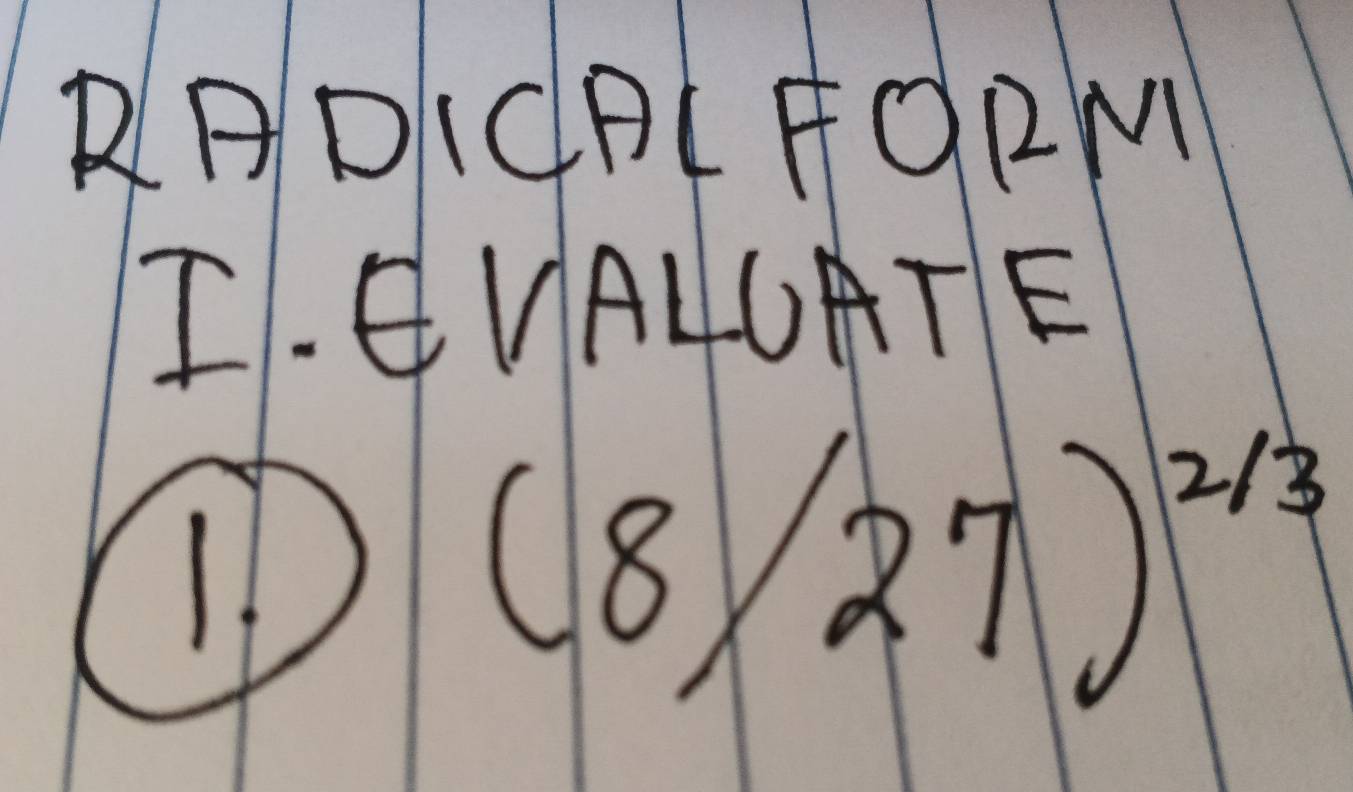 RADICAL FORM
I. EVALUATE
1. (8/27)^2/3